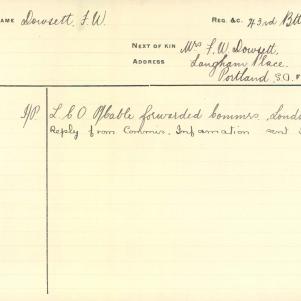 NAME Dowsett, F. W. REG. &C. 43rd Btt
NEXT OF KIN Mrs F. W. Dowsett,
ADDRESS Langham Place.
Portland SO.
L.C.O Cable forwarded Commrs London
Reply from Commrs. Information sent